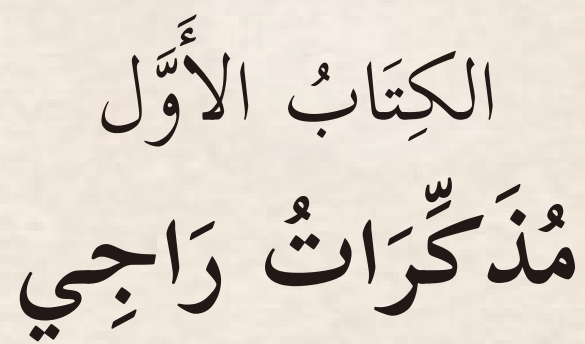 الكِتَابُ الأَوَّل
مُذَكِّرَاتُ رَاجِي